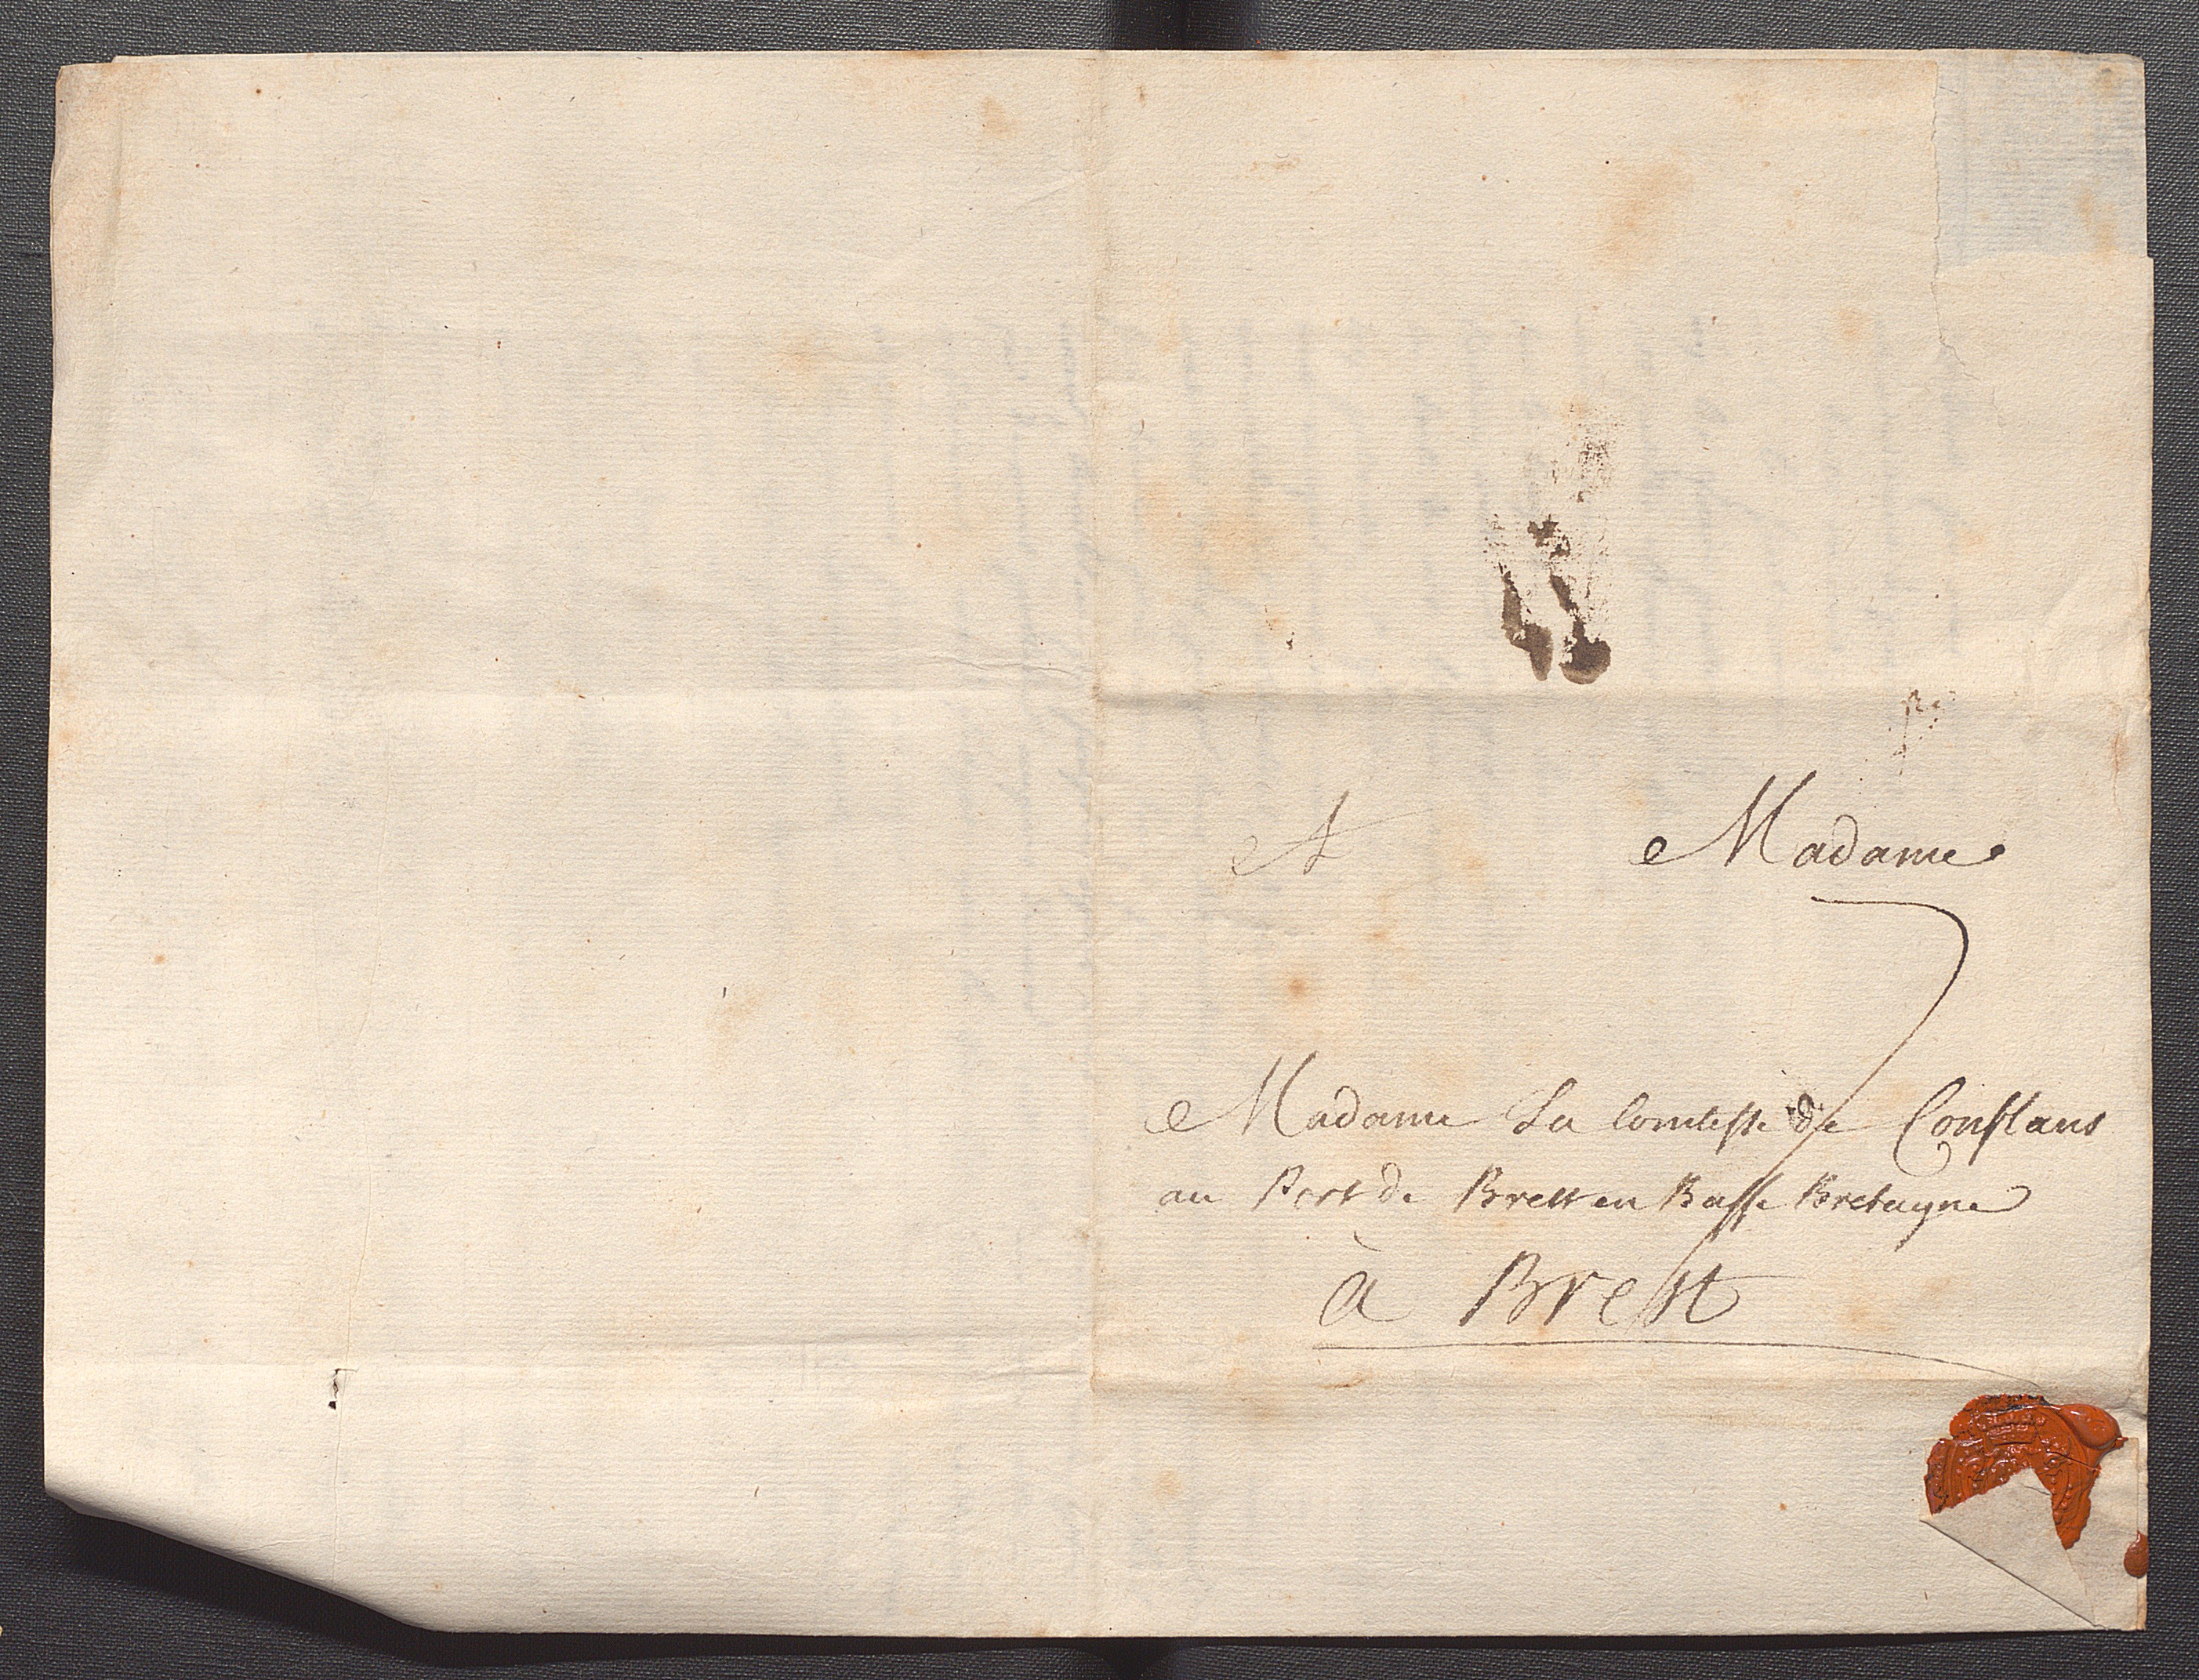 A Madame
Madame La Comtesse de Conflans
au Port de Brest en Basse Bretagne
à Brest